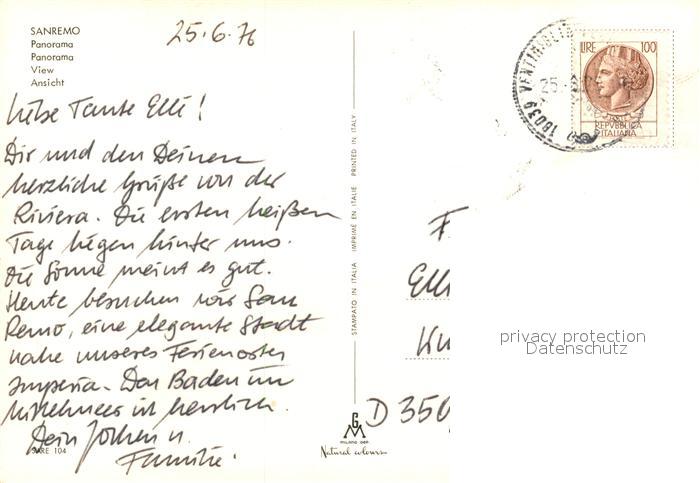 SANREMO
Panorama
Panorama
View
Ansicht
25.6.76
Liebe Tante Elli!
Dir und den Deinen
herzliche Grüße von der
Riviera. Die ersten heißen
Tage liegen hinter uns.
Die Sonne meint es gut.
Heute besuchen wir San
Remo, eine elegante Stadt
nahe unseres Ferienortes
Imperia. Das Baden im
Mittelmeer ist herrlich.
Dein Jochen u.
Familie.
SARE 104
STAMPATO IN ITALIA IMPRIMÉ EN ITALIE PRINTED IN ITALY
GM
MILANO
Natural colours
18039 VENTIMIGLIA
25.6
LIRE 100
REPVBBLICA
ITALIANA
F
Elli
D 350
privacy protection
Datenschutz